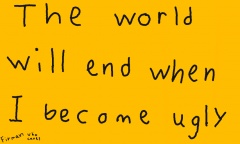 The world
will end when
I become ugly
Firman who
cares